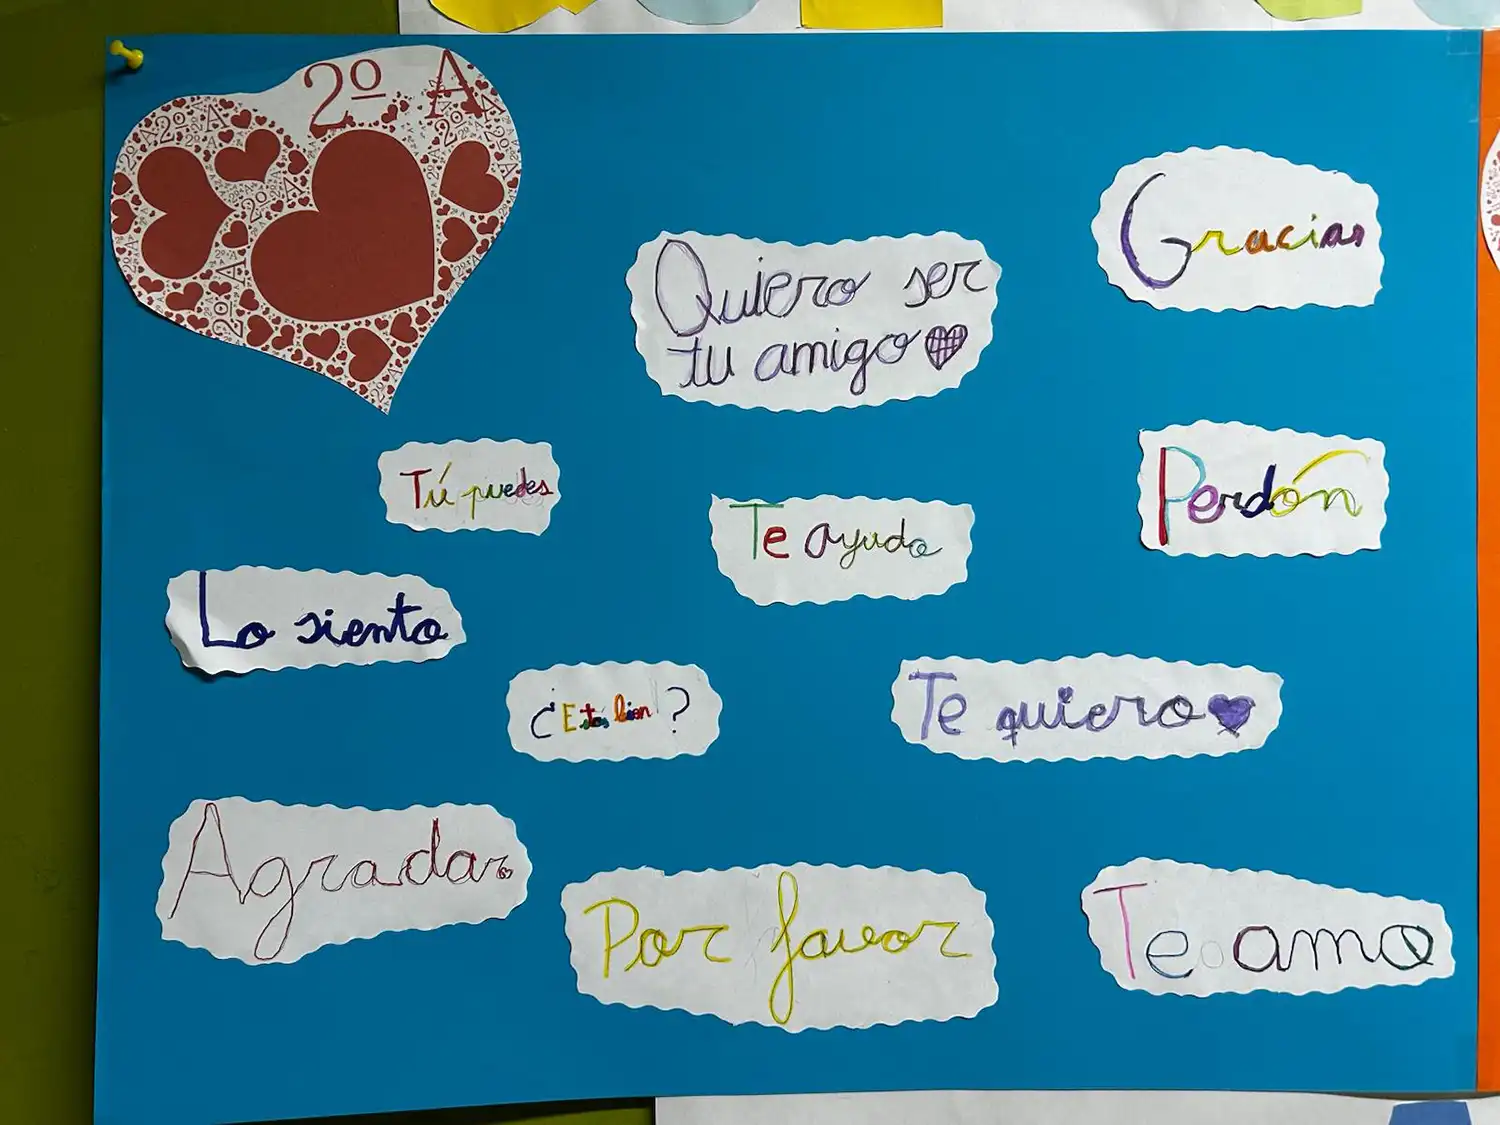 2º A
Gracias
Quiero ser
tu amigo
Tú puedes
Te ayudo
Perdón
Lo siento
¿Estás bien?
Te quiero
Agradar
Por favor
Te amo